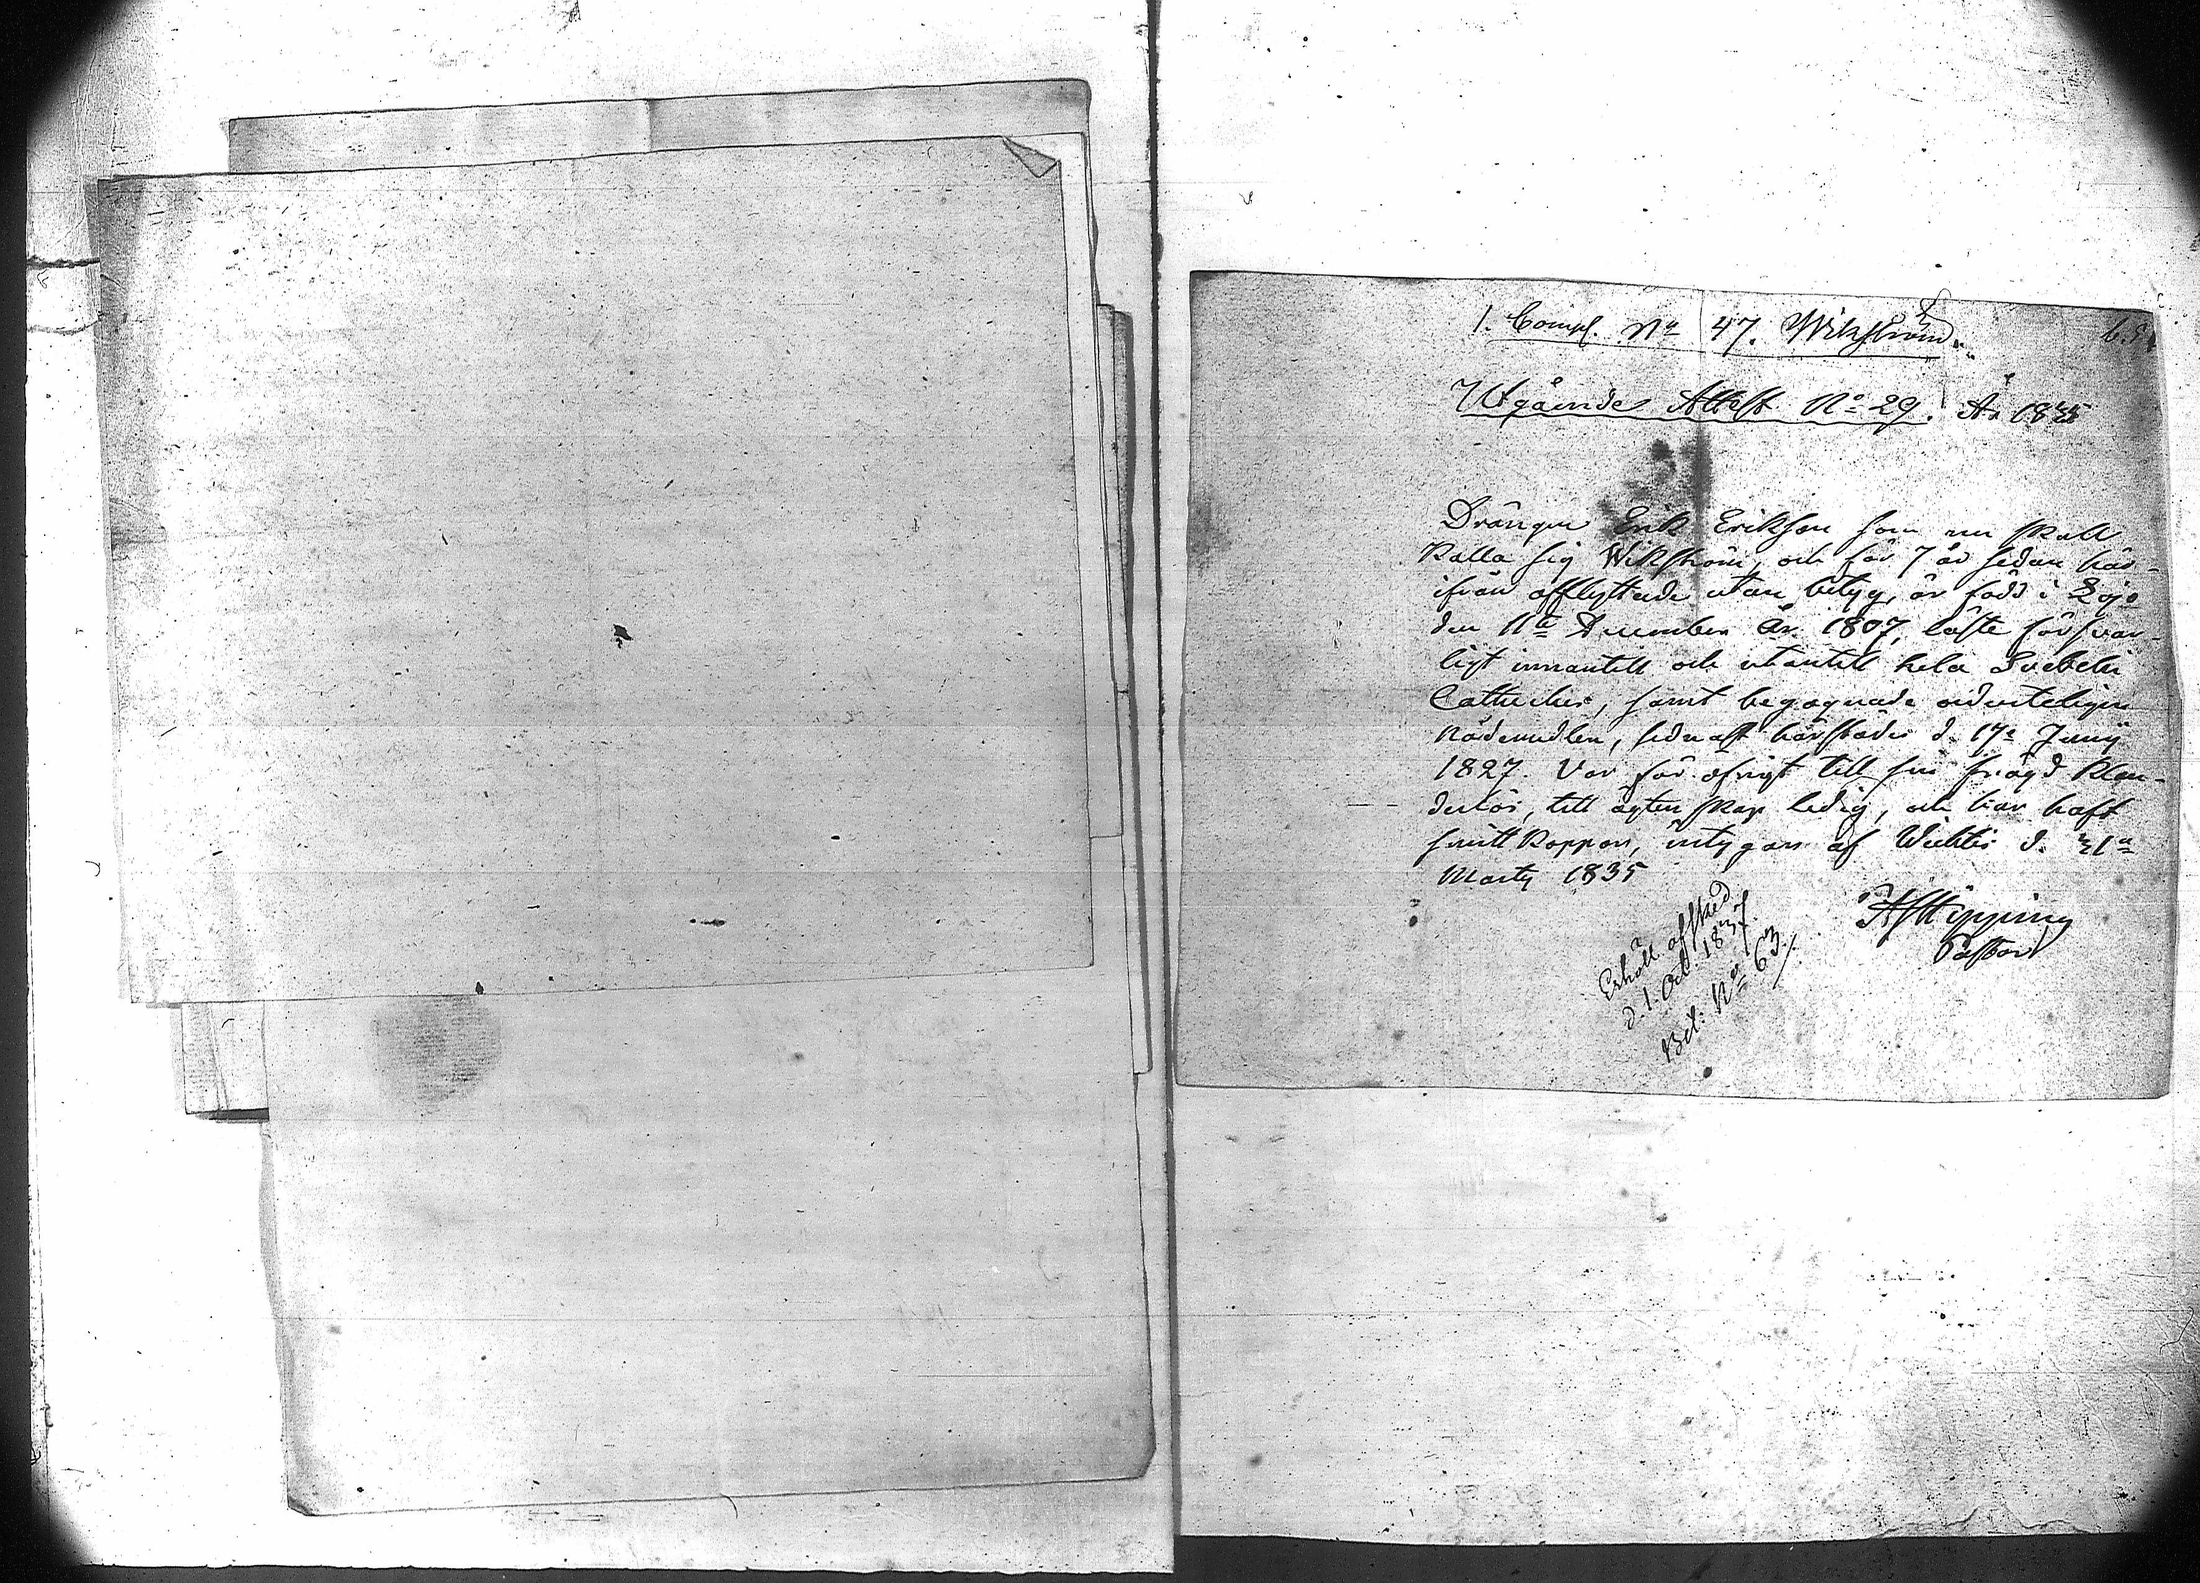 1. Comp. No 47. Wikström.
Utgående Attest No 29. År 1835
Drängen Erik Erikson som nu skall
kalla sig Wikström, och för 7 år sedan här-
ifrån afflyttade utan betyg, är född i Lojo
den 11te December år 1807, läste försvar-
ligt innantill och utantill hela Svebelii
Catheches, samt begagnade ordenteligen
nådemedlen, sednast härstädes d. 17e Junii
1827. Var för öfrigt till sin frägd klan-
derlös, till ägtenskap ledig, och har haft
smittkoppor, intygar af Wichtis d. 21a
Martii 1835
Hipping
Pastor
Erhöll afsked
d. 1. Oct. 1837.
Bet: No 63.